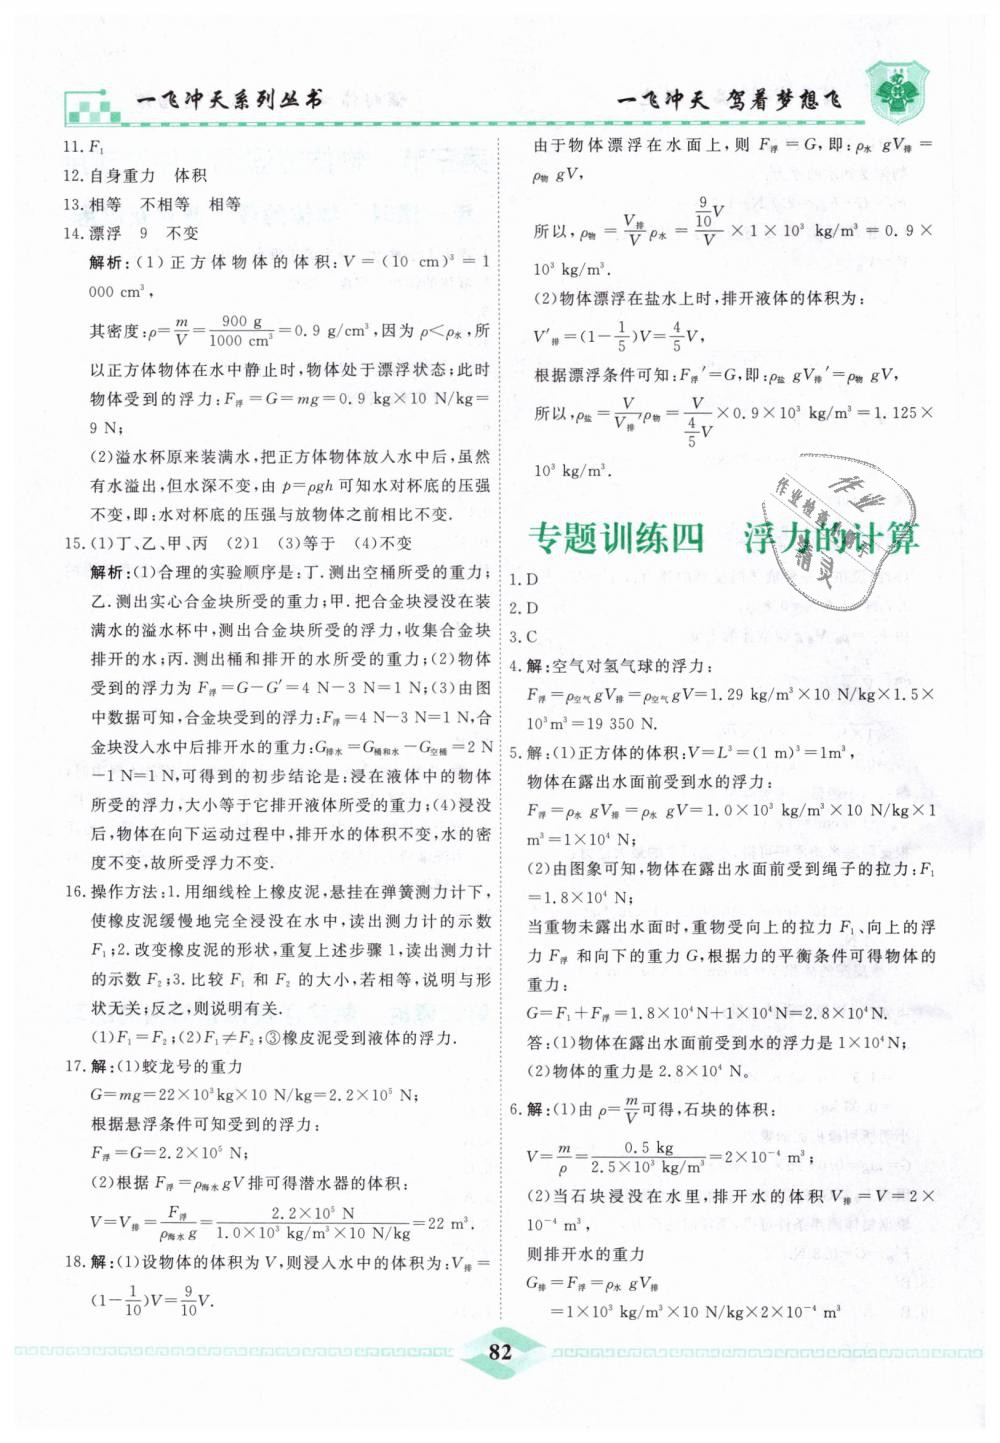 一飞冲天系列丛书
一飞冲天 驾着梦想飞
11. F₁
12. 自身重力 体积
13. 相等 不相等 相等
14. 漂浮 9 不变
解析:(1)正方体物体的体积:V=(10 cm)³=1
000 cm³,
其密度:ρ=m/V=900 g/1000 cm³=0.9 g/cm³,因为 ρ<ρ水,所
以正方体物体在水中静止时,物体处于漂浮状态;此时
物体受到的浮力:F浮=G=mg=0.9 kg×10 N/kg=
9 N;
(2)溢水杯原来装满水,把正方体物体放入水中后,虽然
有水溢出,但水深不变,由 p=ρgh 可知水对杯底的压强
不变,即:水对杯底的压强与放物体之前相比不变.
15. (1)丁、乙、甲、丙 (2)1 (3)等于 (4)不变
解析:(1)合理的实验顺序是:丁.测出空桶所受的重力;
乙.测出实心合金块所受的重力;甲.把合金块浸没在装
满水的溢水杯中,测出合金块所受的浮力,收集合金块
排开的水;丙.测出桶和排开的水所受的重力;(2)物体
受到的浮力为 F浮=G-G′=4 N-3 N=1 N;(3)由图
中数据可知,合金块受到的浮力:F浮=4 N-3 N=1 N,合
金块没入水中后排开水的重力:G排水=G桶和水-G空桶=2 N
-1 N=1 N,可得到的初步结论是:浸在液体中的物体
所受的浮力,大小等于它排开液体所受的重力;(4)浸没
后,物体在向下运动过程中,排开水的体积不变,水的密
度不变,故所受浮力不变.
16. 操作方法:1.用细线栓上橡皮泥,悬挂在弹簧测力计下,
使橡皮泥缓慢地完全浸没在水中,读出测力计的示数
F₁;2.改变橡皮泥的形状,重复上述步骤 1,读出测力计
的示数 F₂;3.比较 F₁ 和 F₂ 的大小,若相等,说明与形
状无关;反之,则说明有关.
(1)F₁=F₂;(2)F₁≠F₂;③橡皮泥受到液体的浮力.
17. 解:(1)蛟龙号的重力
G=mg=22×10³kg×10 N/kg=2.2×10⁵ N;
根据悬浮条件可知受到的浮力:
F浮=G=2.2×10⁵ N;
(2)根据 F浮=ρ海水gV排可得潜水器的体积:
V=V排=F浮/ρ海水g=2.2×10⁵ N/1.0×10³ kg/m³×10 N/kg=22 m³.
18. 解:(1)设物体的体积为 V,则浸入水中的体积为:V排=
(1-1/10)V=9/10V.
由于物体漂浮在水面上,则 F浮=G,即:ρ水 gV排=
ρ物 gV,
所以,ρ物=V排/Vρ水=9/10V/V×1×10³ kg/m³=0.9×
10³ kg/m³.
(2)物体漂浮在盐水上时,排开液体的体积为:
V′排=(1-1/5)V=4/5V,
根据漂浮条件可知:F浮′=G,即:ρ盐 gV排′=ρ物 gV,
所以,ρ盐=V/V排′ρ物=V/4/5V×0.9×10³ kg/m³=1.125×
10³ kg/m³.
专题训练四 浮力的计算
1. D
2. D
3. C
4. 解:空气对氢气球的浮力:
F浮=ρ空气gV排=ρ空气gV=1.29 kg/m³×10 N/kg×1.5×
10³m³=19 350 N.
5. 解:(1)正方体的体积:V=L³=(1 m)³=1m³,
物体在露出水面前受到水的浮力:
F浮=ρ水 gV排=ρ水 gV=1.0×10³ kg/m³×10 N/kg×1
m³=1×10⁴ N;
(2)由图象可知,物体在露出水面前受到绳子的拉力:F₁
=1.8×10⁴ N;
当重物未露出水面时,重物受向上的拉力 F₁、向上的浮
力 F浮 和向下的重力 G,根据力的平衡条件可得物体的
重力:
G=F₁+F浮=1.8×10⁴N+1×10⁴N=2.8×10⁴N.
答:(1)物体在露出水面前受到水的浮力是 1×10⁴N;
(2)物体的重力是 2.8×10⁴ N。
6. 解:(1)由 ρ=m/V可得,石块的体积:
V=m/ρ=0.5 kg/2.5×10³ kg/m³=2×10⁻⁴ m³;
(2)当石块浸没在水里,排开水的体积 V排=V=2×
10⁻⁴ m³,
则排开水的重力
G排=F浮=ρ水 gV排
=1×10³ kg/m³×10 N/kg×2×10⁻⁴ m³
作业
作业检查小助手
精灵
82